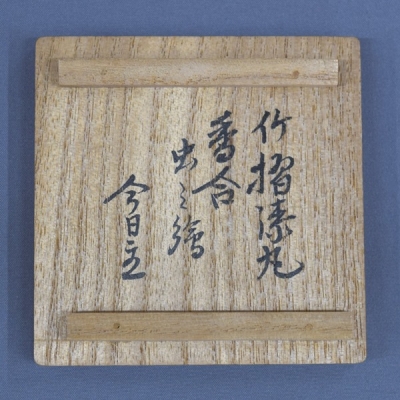 竹摺漆丸
香合
虫之繪
今日主